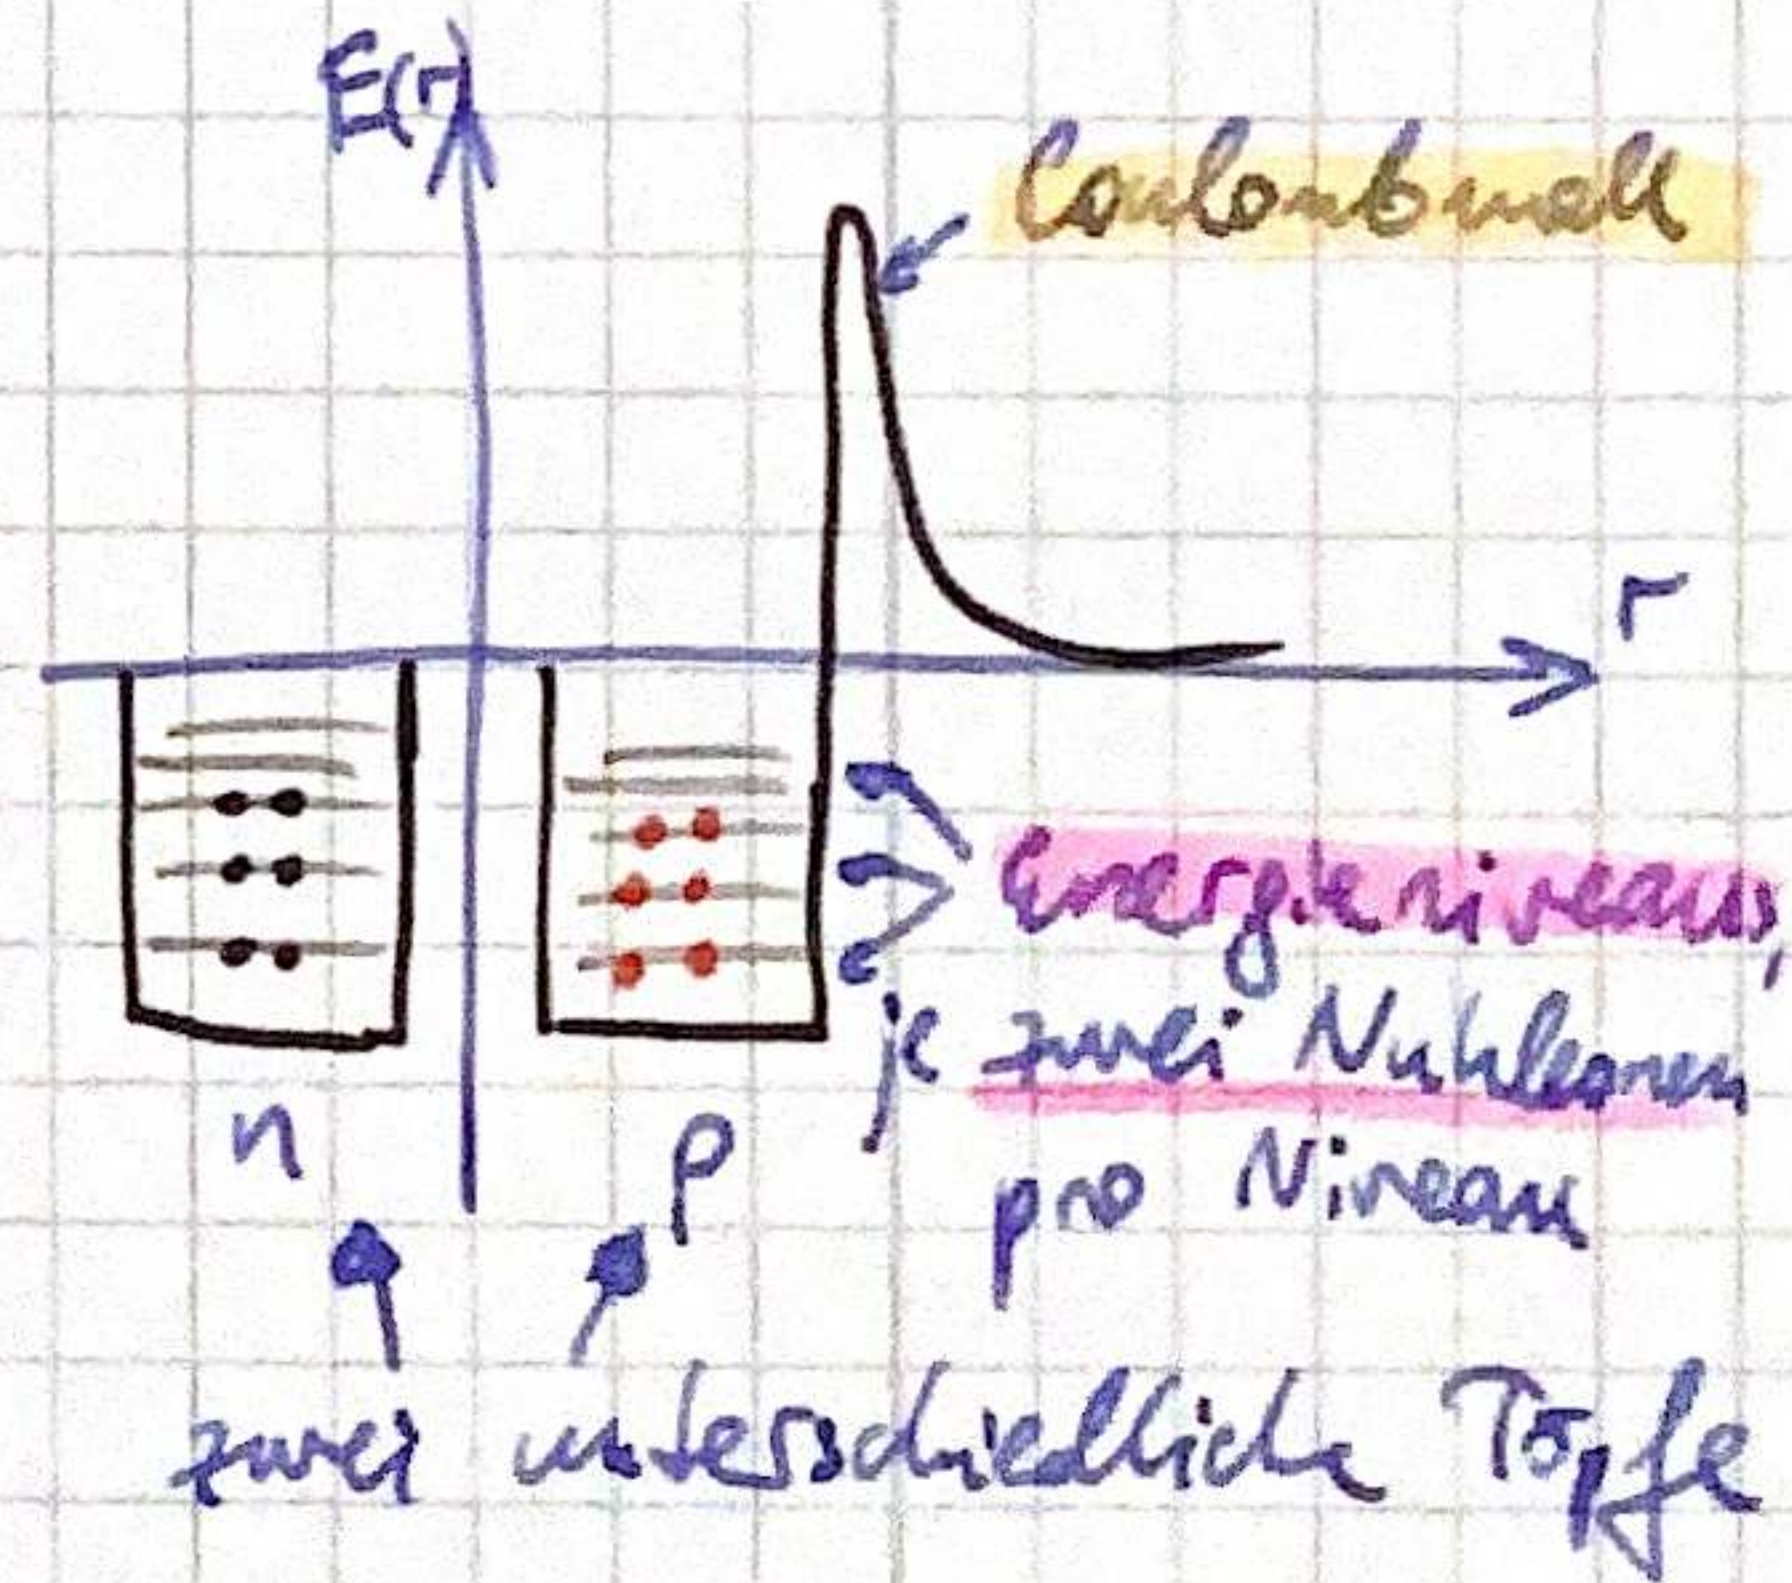 E(r)
Coulombwall
r
Energieniveaus,
je zwei Nukleonen
n
p
pro Niveau
zwei unterschiedliche Töpfe